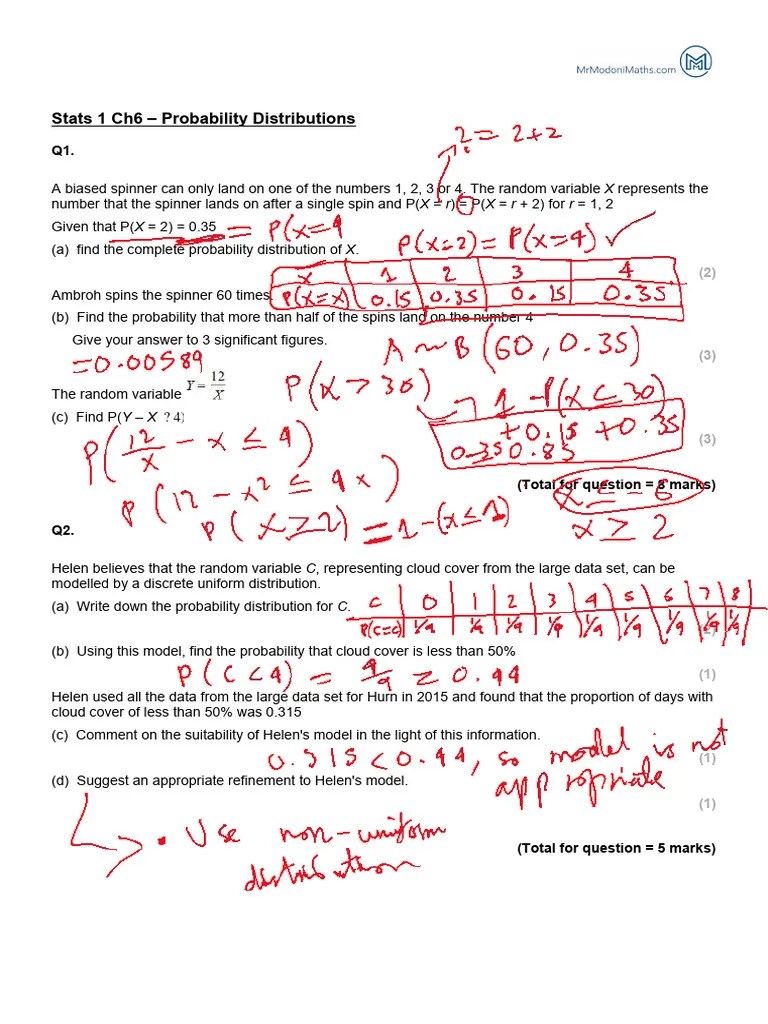 MrModoniMaths.com
Stats 1 Ch6 – Probability Distributions
2 = 2+2
Q1.
A biased spinner can only land on one of the numbers 1, 2, 3 or 4. The random variable X represents the
number that the spinner lands on after a single spin and P(X = r) = P(X = r + 2) for r = 1, 2
Given that P(X = 2) = 0.35 = P(X=4
(a) find the complete probability distribution of X. P(X=2) = P(X=4) ✓
(2)
x 1 2 3 4
P(X=x) 0.15 0.35 0.15 0.35
Ambroh spins the spinner 60 times.
(b) Find the probability that more than half of the spins land on the number 4
Give your answer to 3 significant figures. A ~ B(60, 0.35)
(3)
=0.00589
The random variable Y = 12/X P(X > 30) → 1 - P(X ≤ 30)
(c) Find P(Y – X ? 4)
+0.15 +0.35
(3)
0.35 0.85
P(12/x - x ≤ 4)
P(12 - x² ≤ 4x)
(Total for question = 8 marks)
x ≤ -6
P(X ≥ 2) = 1-(x ≤ 1)
x ≥ 2
Q2.
Helen believes that the random variable C, representing cloud cover from the large data set, can be
modelled by a discrete uniform distribution.
(a) Write down the probability distribution for C.
C 0 1 2 3 4 5 6 7 8
P(C=c) 1/9 1/9 1/9 1/9 1/9 1/9 1/9 1/9 1/9
(2)
(b) Using this model, find the probability that cloud cover is less than 50%
P(C<4) = 4/9 = 0.44
(1)
Helen used all the data from the large data set for Hurn in 2015 and found that the proportion of days with
cloud cover of less than 50% was 0.315
(c) Comment on the suitability of Helen's model in the light of this information.
0.315 < 0.44, so model is not
(1)
appropriate
(d) Suggest an appropriate refinement to Helen's model.
(1)
• Use non-uniform
distribution
(Total for question = 5 marks)